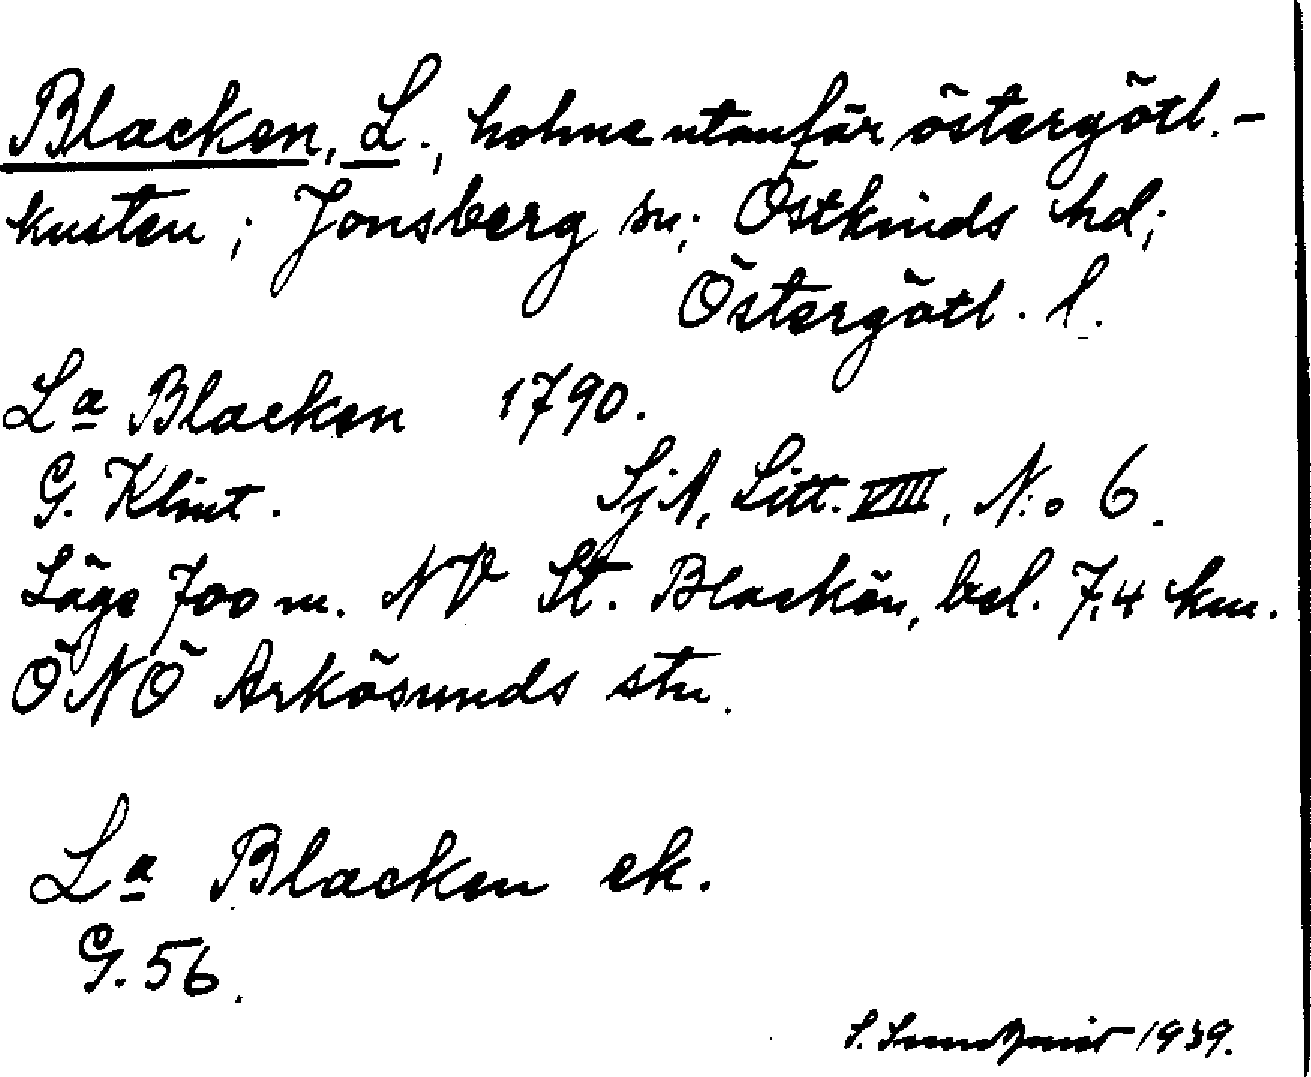 Blacken, L., holme utanför östergötl.-
kusten; Jonsberg sn; Östkinds hd;
Östergötl. l.
La Blacken 1790.
G. Klint. SjA, Litt. VIII, N:o 6.
Läge 700 m. NV St. Blackän, bel. 7,4 km.
ÖNÖ Arkösunds stn.
La Blacken ek.
G. 56.
S. Sundqvist 1939.